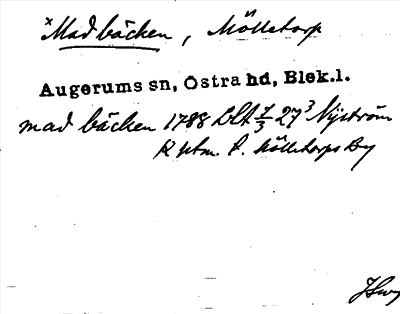 ×Madbäcken, Mölletorp
Augerums sn, Östra hd, Blek.l.
mad bäcken 1788 LLA 7/3 27³ Nyström
R Utm. t. Mölletorps By